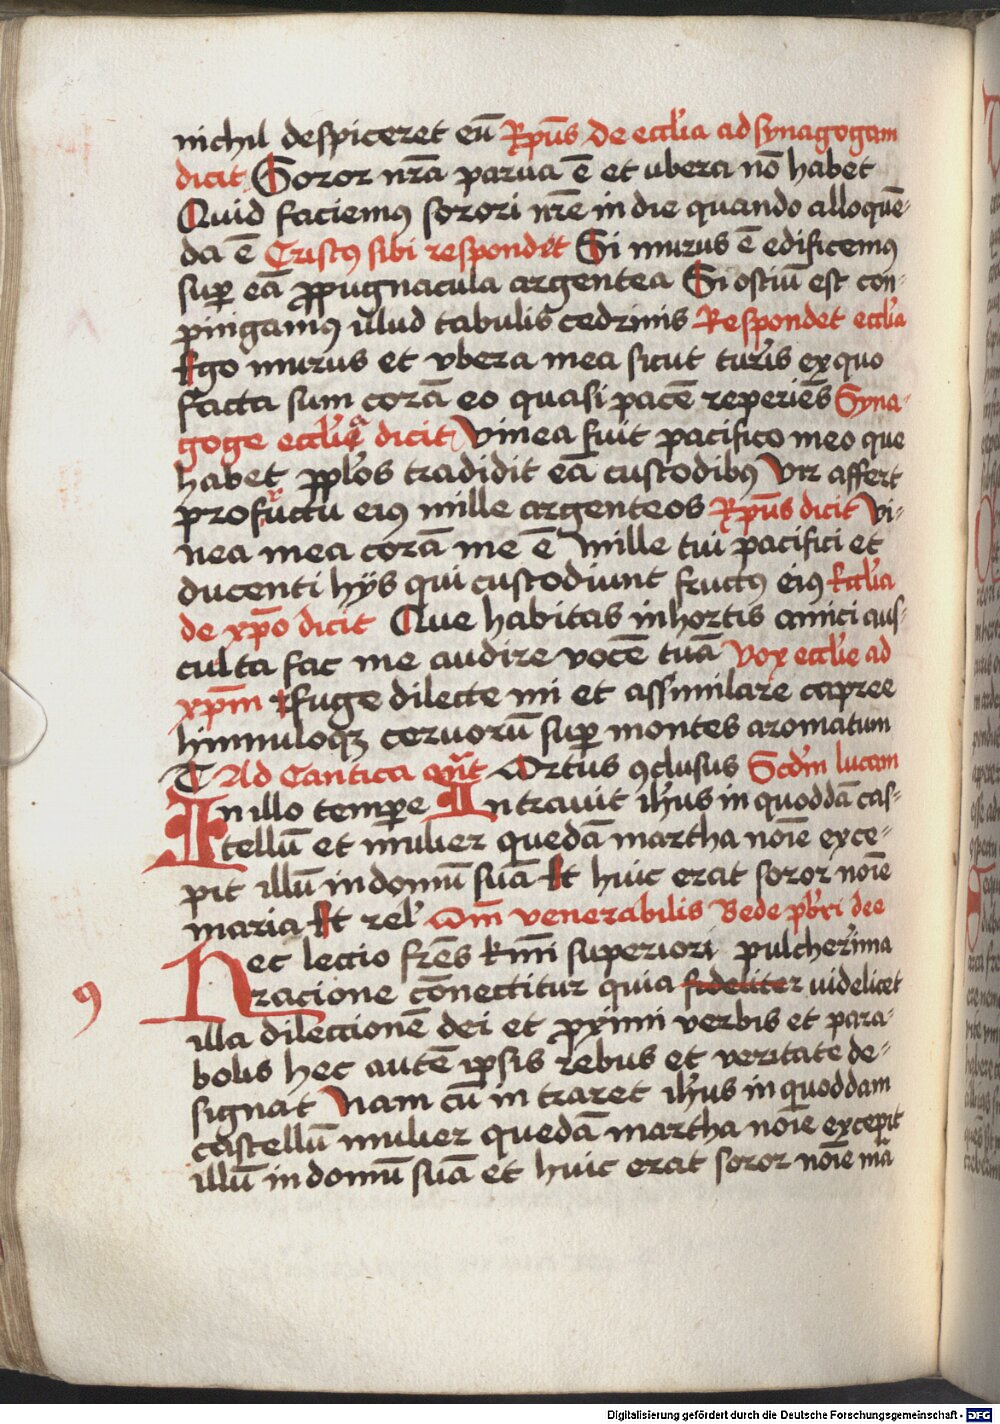 nichil despiceret eū Rp̄us de eccl'ia ad synagogam
dicit Soror nr̄a parua ē et ubera nō habet
Quid faciemꝰ sorori nr̄e in die quando alloquē-
da ē Cristꝰ sibi respondet Si murus ē edificemꝰ
suꝑ eā ꝓpugnacula argentea Si ostiū est con-
pingamꝰ illud tabulis cedrinis Respondet eccl'ia
Ego murus et vbera mea sicut turr'is ex quo
facta sum corā eo quasi pacē reperiēs Syna-
goge eccl'ia dicit Vinea fuit pacifico meo que
habet pp̄l'os tradidit eā custodibꝰ Vir affert
pro fructu eiꝰ mille argenteos Rp̄us dicit Vi-
nea mea corā me ē mille tui pacifici et
ducenti hijs qui custodiunt fructꝰ eiꝰ Eccl'ia
de xp̄o dicit Que habitas in hortis amici aus-
culta fac me audire vocē tuā Vox eccl'ie ad
xp̄m Effuge dilecte mi et assimilare capree
himnuloqꝫ ceruorū suꝑ montes aromatum
Ad Cantica an̄t Ortus ꝯclusus Scd'm lucam
In illo tempꝑe Intrauit ih'us in quoddā cas-
tellū et mulier quedā martha noīe exce-
pit illū in domū suā Et huic erat soror noīe
maria Et rel' Om̄ venerabilis Bede pb'ri de e
Hec lectio fr̄es k̄mi superiori pulcher'ima
racione cōnectitur quia fideliter uidelicet
illa dilectionē dei et ꝓximi verbis et para-
bolis hec autē ip̄sis rebus et veritate de-
signat Nam cū in traret ih'us in quoddam
castellū mulier quedā martha noīe excepit
illū in domū suā et huic erat soror noīe ma
Digitalisierung gefördert durch die Deutsche Forschungsgemeinschaft - DFG